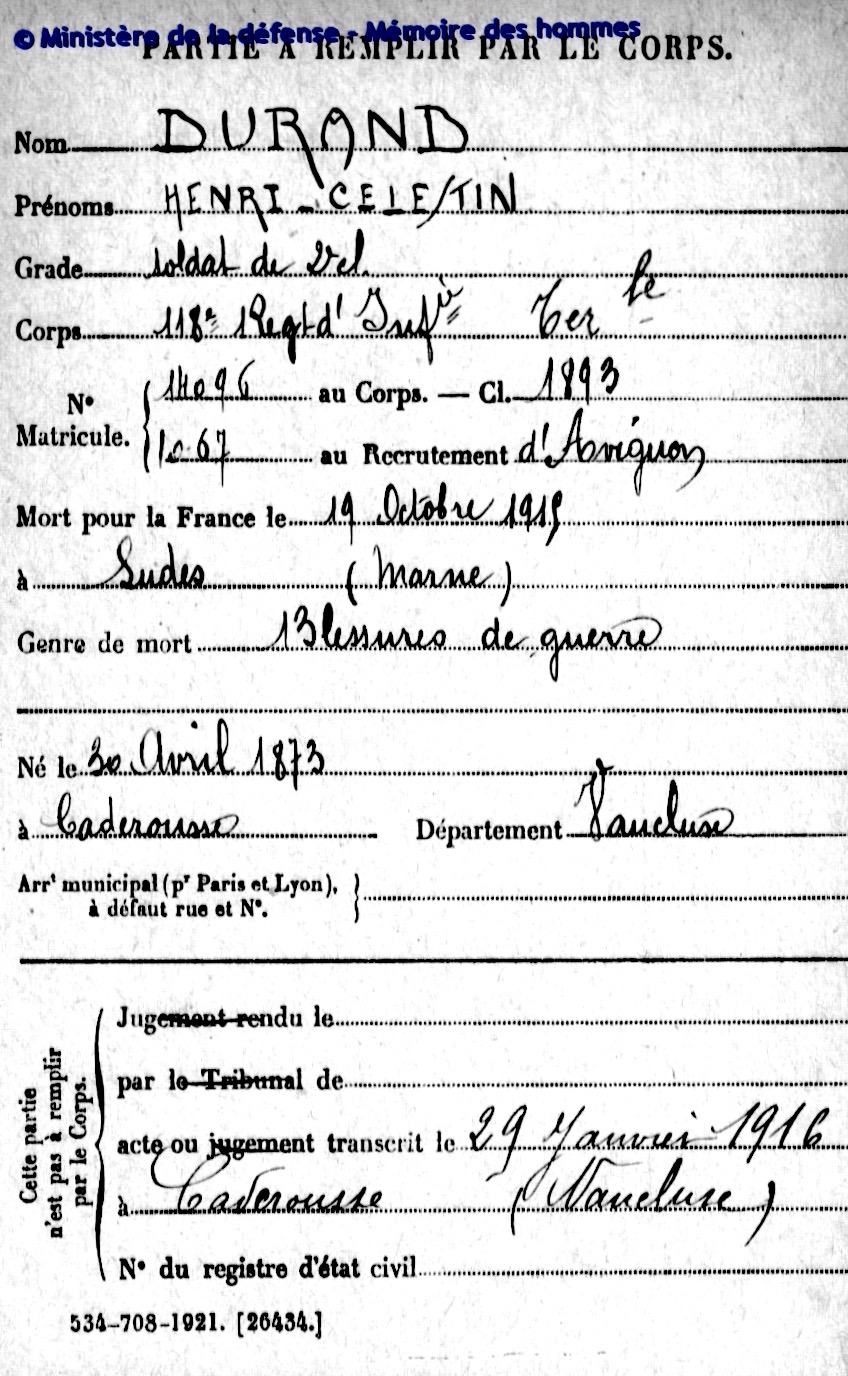 © Ministère de la défense - Mémoire des hommes
PARTIE À REMPLIR PAR LE CORPS.
Nom DURAND
Prénoms HENRI - CELESTIN
Grade soldat de 2e cl.
Corps 118e Regt d'Infie Terle
N° Matricule. 14096 au Corps. — Cl. 1893
1067 au Recrutement d'Avignon
Mort pour la France le 19 Octobre 1915
à Ludes (Marne)
Genre de mort Blessures de guerre
Né le 30 Avril 1873
à Caderousse Département Vaucluse
Arrt municipal (pr Paris et Lyon),
à défaut rue et N°.
Cette partie
n'est pas à remplir
par le Corps.
Jugement rendu le
par le Tribunal de
acte ou jugement transcrit le 29 Janvier 1916
à Caderousse (Vaucluse)
N° du registre d'état civil
534-708-1921. [26434.]